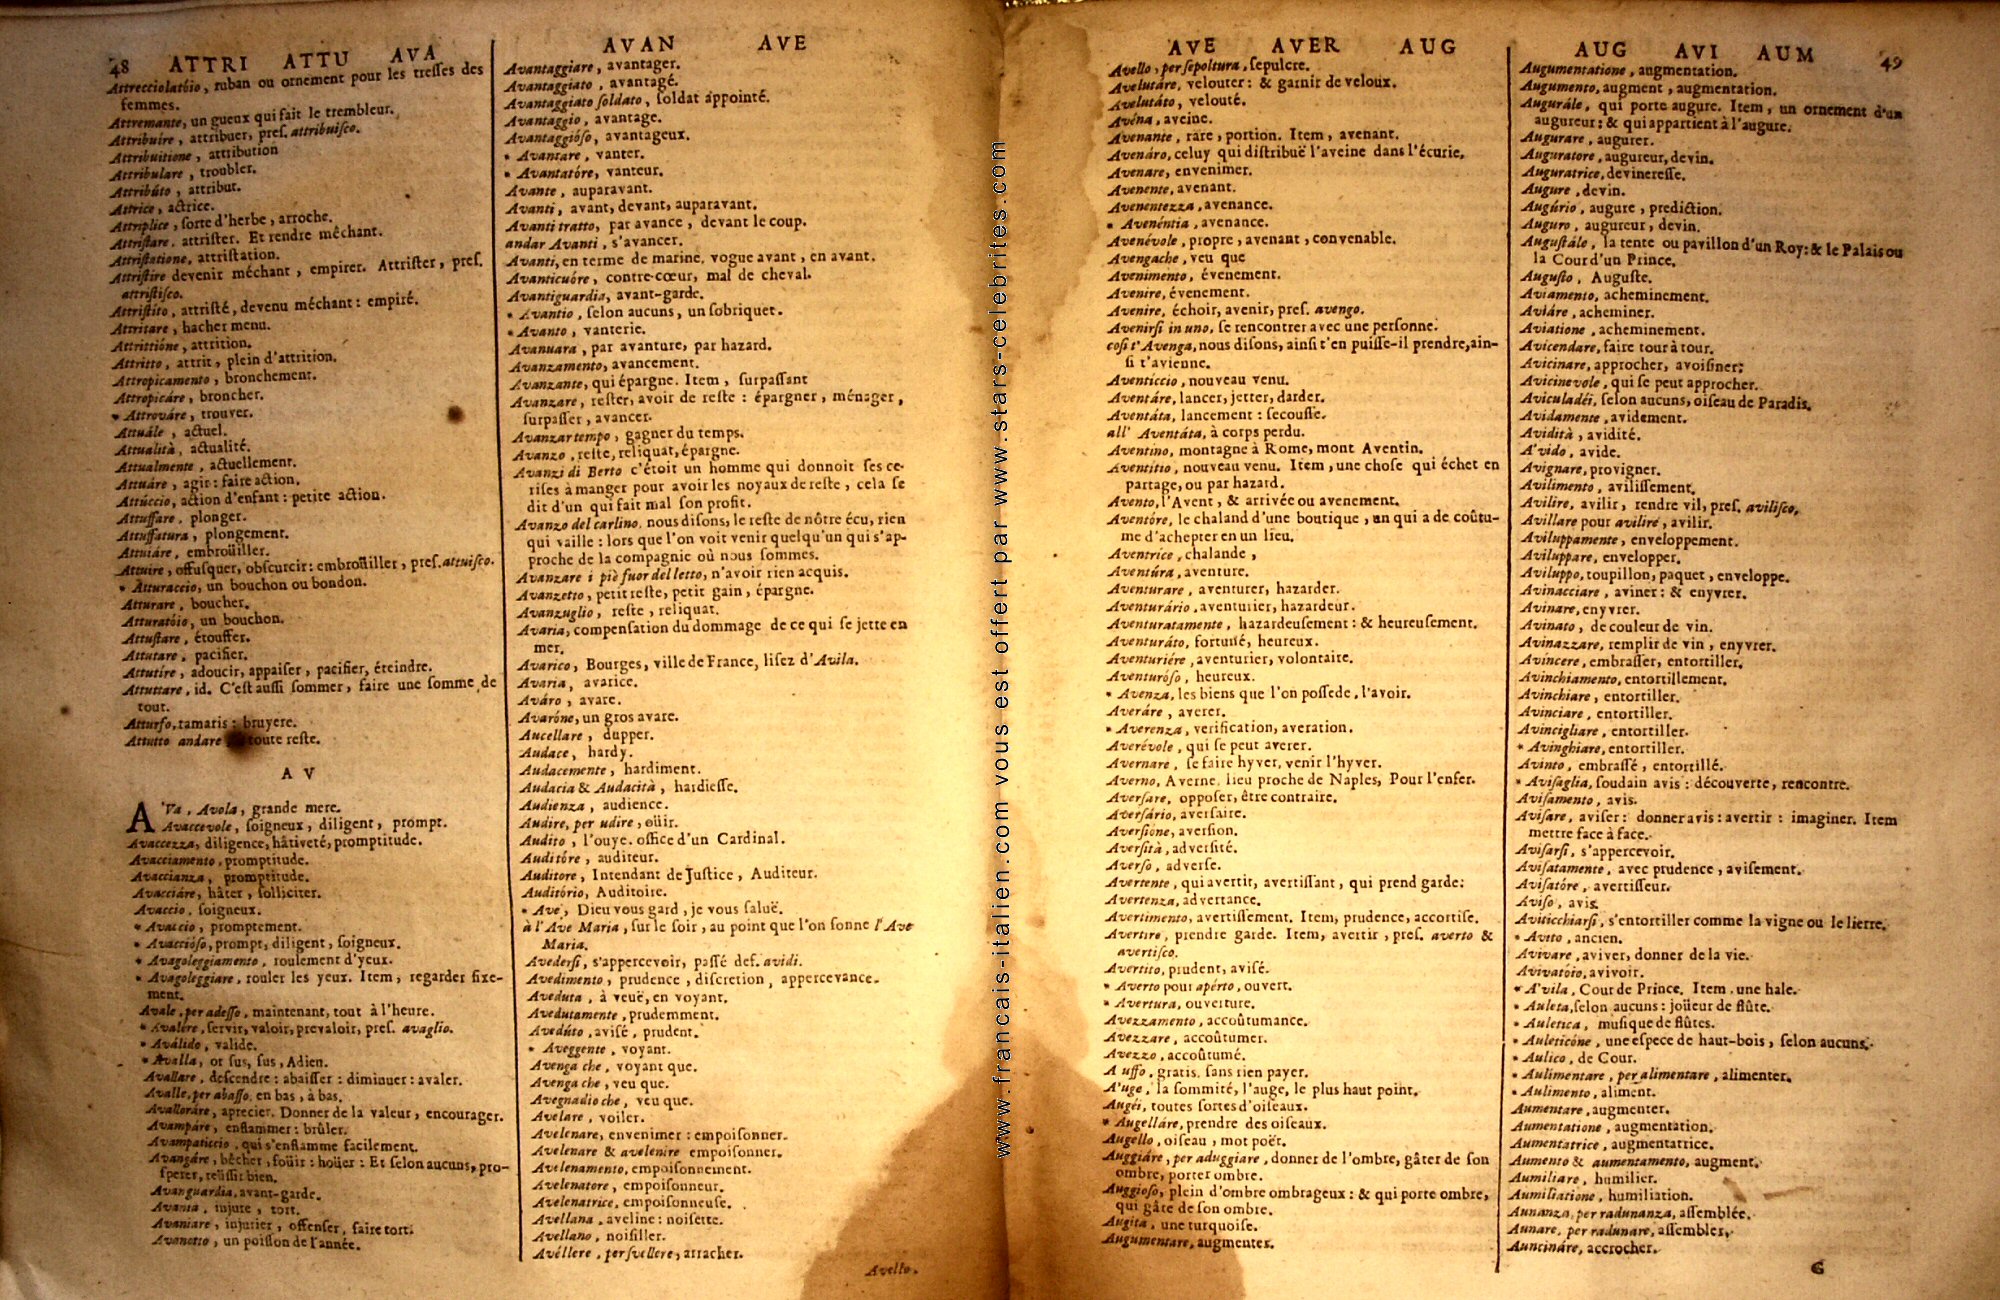 48 ATTRI ATTU AVA
Attrecciolatóio, ruban ou ornement pour les tresses des
femmes.
Attremante, un gueux qui fait le trembleur.
Attribuire, attribuer, pres. attribuisco.
Attribuitione, attribution
Attribulare, troubler.
Attribúto, attribut.
Attrice, actrice.
Attriplice, sorte d'herbe, arroche.
Attristare, attrister. Et rendre mêchant.
Attristatione, attristation.
Attristire devenir méchant, empirer. Attrister, pres.
attristisco.
Attristito, attristé, devenu méchant: empiré.
Attritare, hacher menu.
Attrittióne, attrition.
Attritto, attrit, plein d'attrition.
Attropicamento, bronchement.
Attropicáre, broncher.
* Attrováre, trouver.
Attuále, actuel.
Attualità, actualité.
Attualmente, actuellement.
Attuáre, agir: faire action.
Attúccio, action d'enfant: petite action.
Attuffare, plonger.
Attuffatura, plongement.
Attuiáre, embroüiller.
Attuire, offusquer, obscurcir: embroüiller, pres. attuisco.
* Atturaccio, un bouchon ou bondon.
Atturare, boucher.
Atturatóio, un bouchon.
Attustare, étouffer.
Attutare, pacifier.
Attutire, adoucir, appaiser, pacifier, éteindre.
Attuttare, id. C'est aussi sommer, faire une somme de
tout.
Atturso, tamaris: bruyere.
Attutto andare toute reste.
A V
A'Va, Avola, grande mere.
Avaccevole, soigneux, diligent, prompt.
Avaccezza, diligence, hâtiveté, promptitude.
Avacciamento, promptitude.
Avaccianza, promptitude.
Avacciáre, hâter, solliciter.
Avaccio, soigneux.
* Avaccio, promptement.
* Avaccióso, prompt, diligent, soigneux.
* Avagoleggiamento, roulement d'yeux.
* Avagoleggiare, rouler les yeux. Item, regarder fixe-
ment.
Avale, per adesso, maintenant, tout à l'heure.
* Avalére, servir, valoir, prevaloir, pres. avaglio.
* Aválido, valide.
* Avalla, or sus, sus, Adien.
Avallare, descendre: abaisser: diminuer: avaler.
Avalle, per abasso, en bas, à bas.
Avalloráre, aprecier. Donner de la valeur, encourager.
Avampáre, enflammer: brûler.
Avampaticcio, qui s'enflamme facilement.
Avangáre, bêcher, foüir: hoüer: Et selon aucuns, pro-
sperer, reüssir bien.
Avanguardia, avant-garde.
Avania, injure, tort.
Avaniare, injurier, offenser, faire tort.
Avanotto, un poisson de l'année.
AVAN AVE
Avantaggiare, avantager.
Avantaggiato, avantagé.
Avantaggiato soldato, soldat appointé.
Avantaggio, avantage.
Avantaggióso, avantageux.
* Avantare, vanter.
* Avantatóre, vanteur.
Avante, auparavant.
Avanti, avant, devant, auparavant.
Avanti tratto, par avance, devant le coup.
andar Avanti, s'avancer.
Avanti, en terme de marine, vogue avant, en avant.
Avanticuóre, contre-cœur, mal de cheval.
Avantiguardia, avant-garde.
* Avantio, selon aucuns, un sobriquet.
* Avanto, vanterie.
Avanuara, par avanture, par hazard.
Avanzamento, avancement.
Avanzante, qui épargne. Item, surpassant
Avanzare, rester, avoir de reste: épargner, ménager,
surpasser, avancer.
Avanzar tempo, gagner du temps.
Avanzo, reste, reliquat, épargne.
Avanzi di Berto c'étoit un homme qui donnoit ses ce-
rises à manger pour avoir les noyaux de reste, cela se
dit d'un qui fait mal son profit.
Avanzo del carlino, nous disons, le reste de nôtre écu, rien
qui vaille: lors que l'on voit venir quelqu'un qui s'ap-
proche de la compagnie où nous sommes.
Avanzare i piè fuor del letto, n'avoir rien acquis.
Avanzetto, petit reste, petit gain, épargne.
Avanzuglio, reste, reliquat.
Avaria, compensation du dommage de ce qui se jette en
mer.
Avarico, Bourges, ville de France, lisez d'Avila.
Avaria, avarice.
Aváro, avare.
Avaróne, un gros avare.
Aucellare, dupper.
Audace, hardy.
Audacemente, hardiment.
Audacia & Audacità, hardiesse.
Audienza, audience.
Audire, per udire, oüir.
Audito, l'ouye. office d'un Cardinal.
Auditóre, auditeur.
Auditore, Intendant de Justice, Auditeur.
Auditório, Auditoire.
* Ave, Dieu vous gard, je vous saluë.
à l'Ave Maria, sur le soir, au point que l'on sonne l'Ave
Maria.
Avedersi, s'appercevoir, passé def. avidi.
Avedimento, prudence, discretion, appercevance.
Aveduta, à veuë, en voyant.
Avedutamente, prudemment.
Avedúto, avisé, prudent.
* Aveggente, voyant.
Avenga che, voyant que.
Avenga che, veu que.
Avegnadio che, veu que.
Avelare, voiler.
Avelenare, envenimer: empoisonner.
Avelenare & avelenire empoisonner.
Avelenamento, empoisonnement.
Avelenatore, empoisonneur.
Avelenatrice, empoisonneuse.
Avellana, aveline: noisette.
Avellano, noisiller.
Avéllere, per svellere, arracher.
Avello.
AVE AVER AUG
Avello, per sepoltura, sepulcre.
Avelutáre, velouter: & garnir de veloux.
Avelutáto, velouté.
Avéna, aveine.
Avenante, rare, portion. Item, avenant.
Avenáro, celuy qui distribuë l'aveine dans l'écurie.
Avenare, envenimer.
Avenente, avenant.
Avenentezza, avenance.
* Avenéntia, avenance.
Avenévole, propre, avenant, convenable.
Avengache, veu que
Avenimento, évenement.
Avenire, évenement.
Avenire, échoir, avenir, pres. avengo.
Avenirsi in uno, se rencontrer avec une personne.
cosi t'Avenga, nous disons, ainsi t'en puisse-il prendre, ain-
si t'avienne.
Aventiccio, nouveau venu.
Aventáre, lancer, jetter, darder.
Aventáta, lancement: secousse.
all' Aventáta, à corps perdu.
Aventino, montagne à Rome, mont Aventin.
Aventitio, nouveau venu. Item, une chose qui échet en
partage, ou par hazard.
Avento, l'Avent, & arrivée ou avenement.
Aventóre, le chaland d'une boutique, un qui a de coûtu-
me d'achepter en un lieu.
Aventrice, chalande,
Aventúra, aventure.
Aventurare, aventurer, hazarder.
Aventurário, aventurier, hazardeur.
Aventuratamente, hazardeusement: & heureusement.
Aventuráto, fortuné, heureux.
Aventuriére, aventurier, volontaire.
Aventuróso, heureux.
* Avenza, les biens que l'on possede, l'avoir.
Averáre, averer.
* Averenza, verification, averation.
Averévole, qui se peut averer.
Avernare, se faire hyver, venir l'hyver.
Averno, Averne, lieu proche de Naples, Pour l'enfer.
Aversare, opposer, être contraire.
Aversário, aversaire.
Aversióne, aversion.
Aversità, adversité.
Averso, adverse.
Avertente, qui avertit, avertissant, qui prend garde:
Avertenza, advertance.
Avertimento, avertissement. Item, prudence, accortise.
Avertire, prendre garde. Item, avertir, pres. averto &
avertisco.
Avertito, prudent, avisé.
* Averto pour apérto, ouvert.
* Avertura, ouverture.
Avezzamento, accoûtumance.
Avezzare, accoûtumer.
Avezzo, accoûtumé.
A uffo, gratis, sans rien payer.
A'uge, la sommité, l'auge, le plus haut point.
Augéi, toutes sortes d'oiseaux.
* Augelláre, prendre des oiseaux.
Augello, oiseau, mot poët.
Auggiáre, per aduggiare, donner de l'ombre, gâter de son
ombre, porter ombre.
Auggioso, plein d'ombre ombrageux: & qui porte ombre,
qui gâte de son ombre.
Augita, une turquoise.
Augumentare, augmenter.
AUG AVI AUM 49
Augumentatione, augmentation.
Augumento, augment, augmentation.
Augurále, qui porte augure. Item, un ornement d'un
augureur: & qui appartient à l'augure.
Augurare, augurer.
Auguratore, augureur, devin.
Auguratrice, devineresse.
Augure, devin.
Augúrio, augure, prediction.
Auguro, augureur, devin.
Augustále, la tente ou pavillon d'un Roy: & le Palais ou
la Cour d'un Prince.
Augusto, Auguste.
Aviamento, acheminement.
Aviáre, acheminer.
Aviatione, acheminement.
Avicendare, faire tour à tour.
Avicinare, approcher, avoisiner:
Avicinevole, qui se peut approcher.
Aviculadéi, selon aucuns, oiseau de Paradis.
Avidamente, avidement.
Avidità, avidité.
A'vido, avide.
Avignare, provigner.
Avilimento, avilissement.
Avilire, avilir, rendre vil, pres. avilisco.
Avillare pour avilire, avilir.
Aviluppamente, enveloppement.
Aviluppare, envelopper.
Aviluppo, toupillon, paquet, enveloppe.
Avinacciare, aviner: & enyvrer.
Avinare, enyvrer.
Avinato, de couleur de vin.
Avinazzare, remplir de vin, enyvrer.
Avincere, embrasser, entortiller.
Avinchiamento, entortillement.
Avinchiare, entortiller.
Avinciare, entortiller.
Avincigliare, entortiller.
* Avinghiare, entortiller.
Avinto, embrassé, entortillé.
* Avisaglia, soudain avis: découverte, rencontre.
Avisamento, avis.
Avisare, aviser: donner avis: avertir: imaginer. Item
mettre face à face.
Avisarsi, s'appercevoir.
Avisatamente, avec prudence, avisement.
Avisatóre, avertisseur.
Aviso, avis.
Aviticchiarsi, s'entortiller comme la vigne ou le lierre.
* Avito, ancien.
Avivare, aviver, donner de la vie.
Avivatóio, avivoir.
* A'vila, Cour de Prince. Item, une hale.
* Auleta, selon aucuns: joüeur de flûte.
* Auletica, musique de flûtes.
* Auleticóne, une espece de haut-bois, selon aucuns.
* Aulico, de Cour.
* Aulimentare, per alimentare, alimenter.
* Aulimento, aliment.
Aumentare, augmenter.
Aumentatione, augmentation.
Aumentatrice, augmentatrice.
Aumento & aumentamento, augment.
Aumiliare, humilier.
Aumiliatione, humiliation.
Aunanza, per radunanza, assemblée.
Aunare, per radunare, assembler.
Auncináre, accrocher.
G
www.francais-italien.com vous est offert par www.stars-celebrites.com